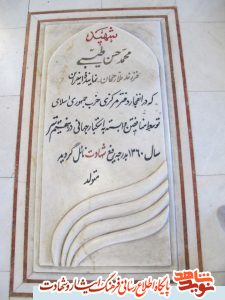 شهید
محمد حسن طیبی
فرزند غلامرضا نماینده
که در انفجار دفتر مرکزی حزب جمهوری اسلامی
توسط منافقین وابسته به استکبار جهانی در هفتم تیر
سال ۱۳۶۰ بدرجه رفیع شهادت نائل گردید
متولد
نوید شاهد
پایگاه اطلاع رسانی فرهنگ ایثار و شهادت